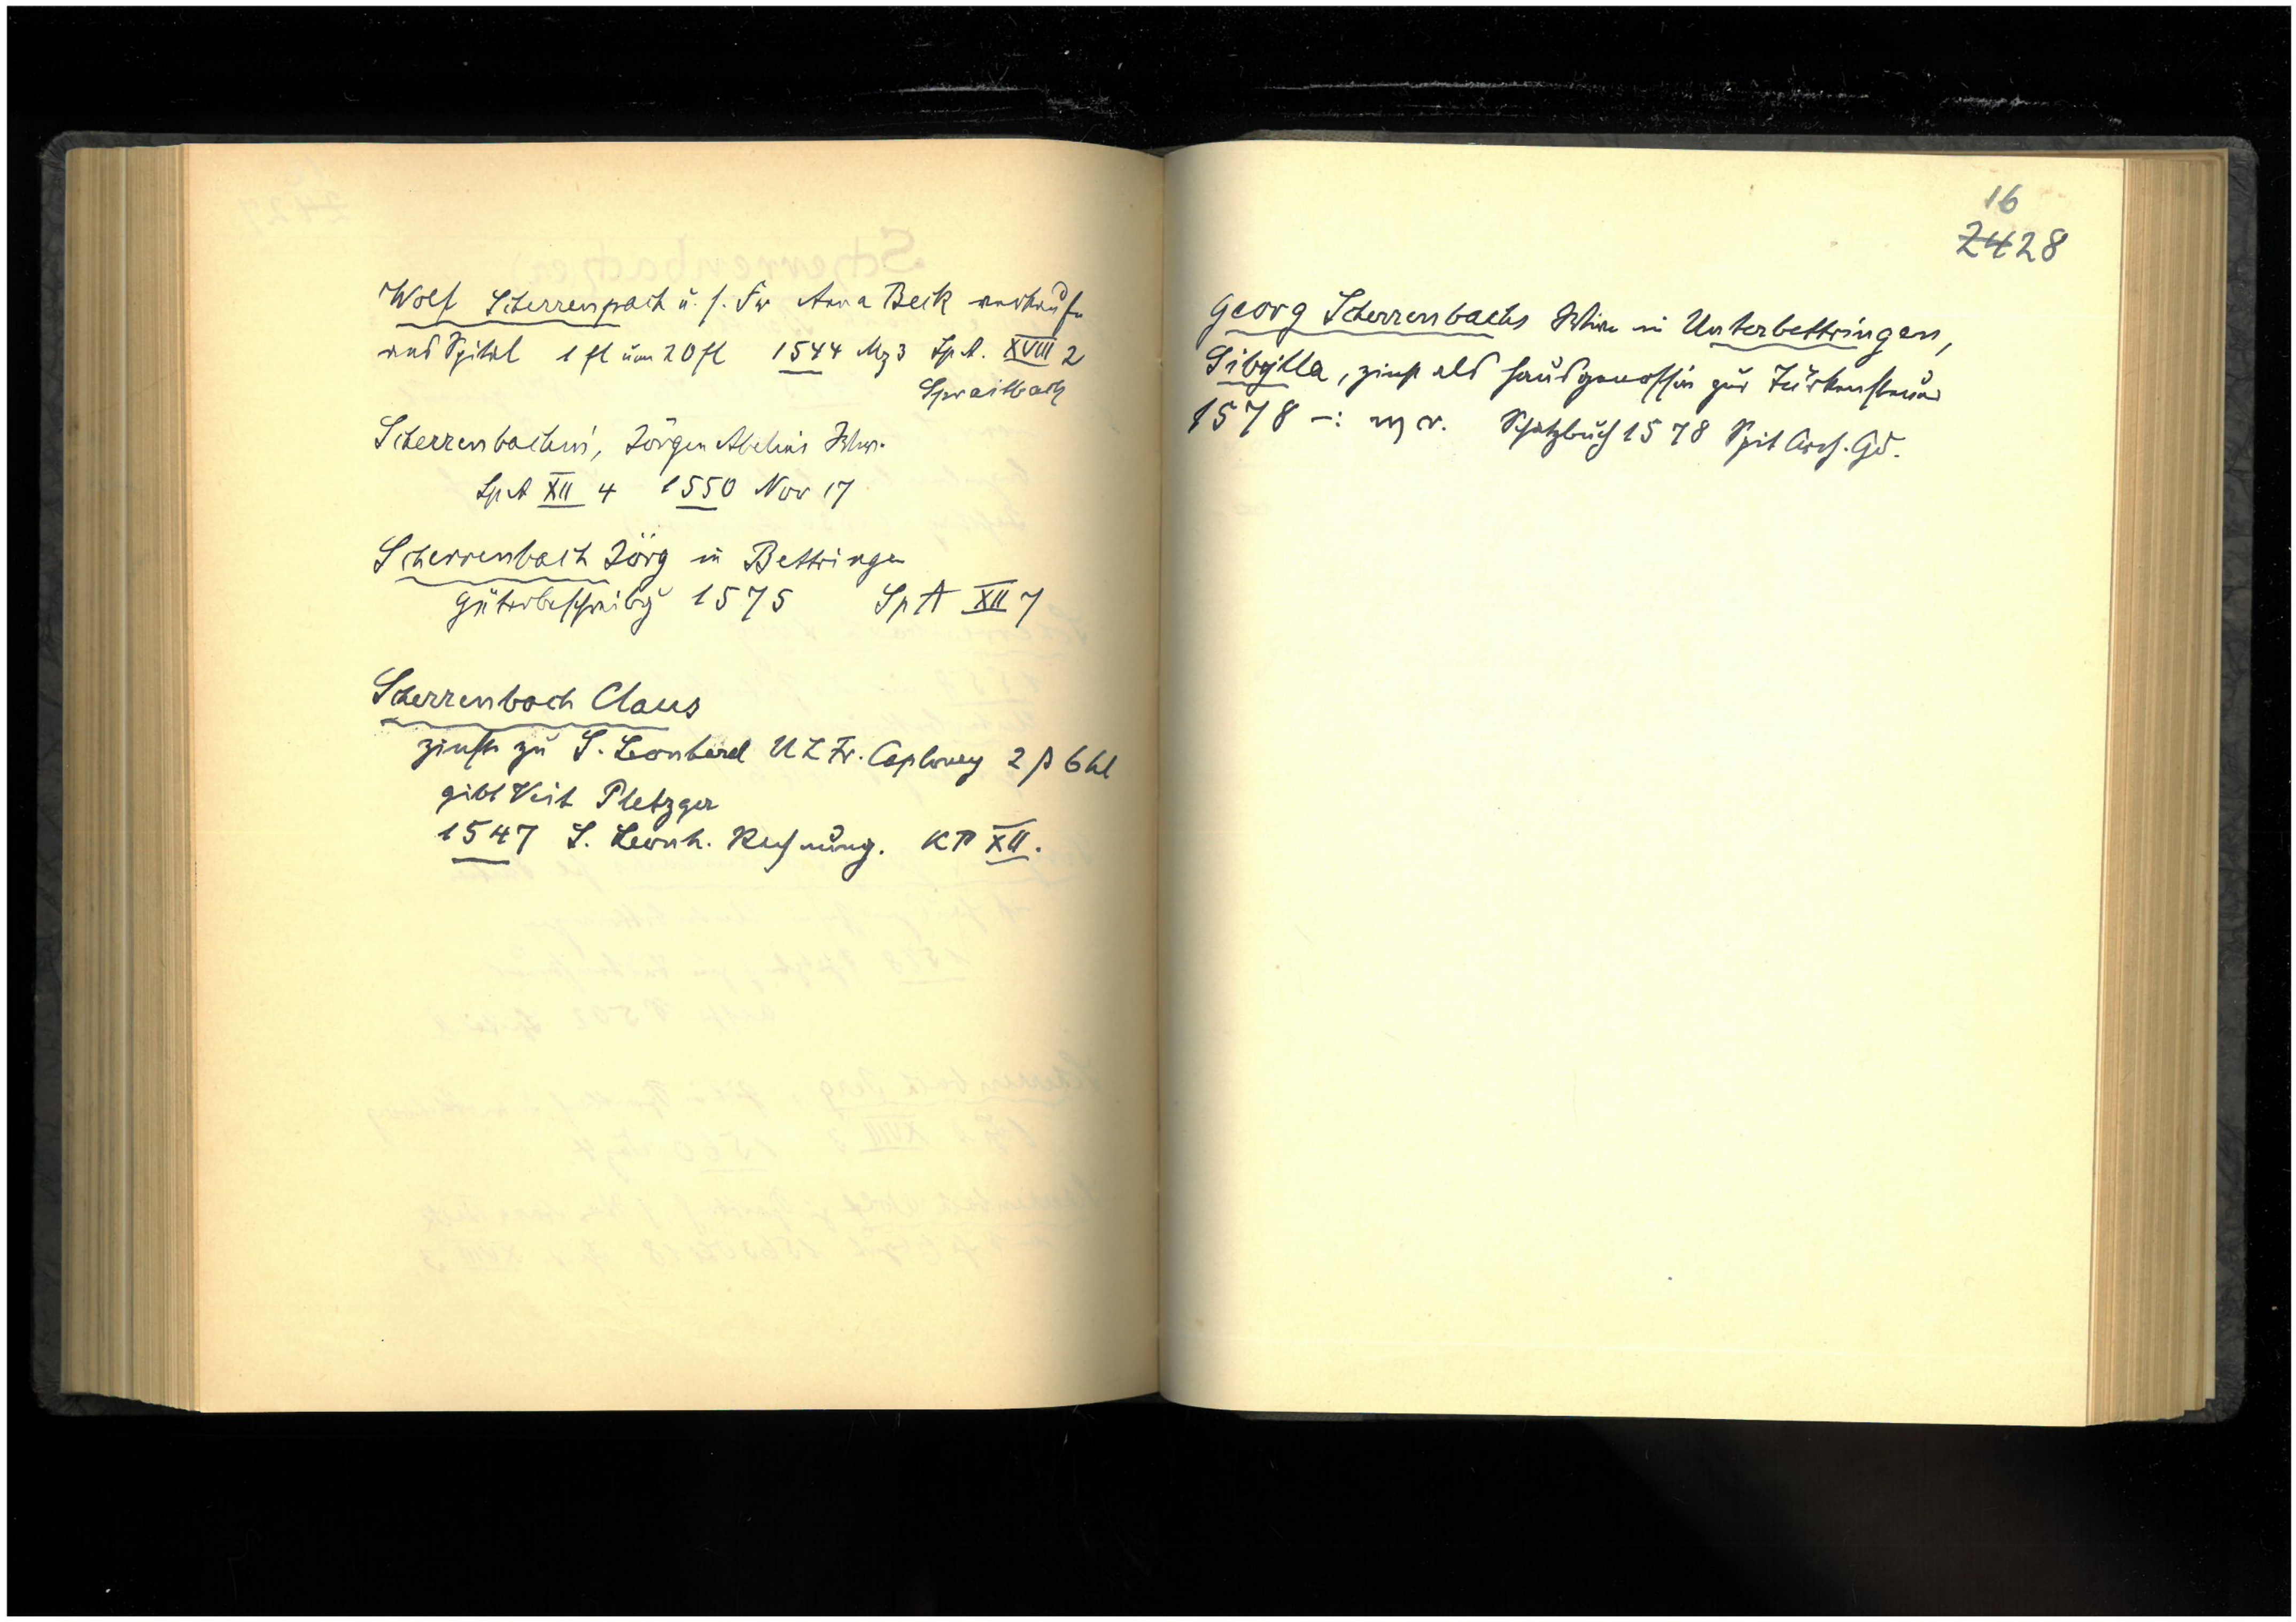 Wolf Scherrenpach u. s. Fr Anna Beck verkaufn
ans Spital 1 fl um 20 fl 1544 Mz 3 Sp A. XVIII 2
Spraitbach
Scherrenbachin, Jörgen Abelins Wwe.
Sp A XII 4 1550 Nov 17
Scherrenbach Jörg in Bettringen
Güterbeschreibg 1575 Sp A XII 7
Scherrenbach Claus
zinst zu S. Leonhard U L Fr. Caploney 2 ß 6 hl
gibt Veit Pletzger
1547 S. Leonh. Rechnung. KP XII.
16
2428
Georg Scherrenbachs Witwe in Unterbettringen,
Sibylla, zinst als Hausgenossin zur Türkensteuer
1578 –: Schatzbuch 1578 Spit Arch. Gd.